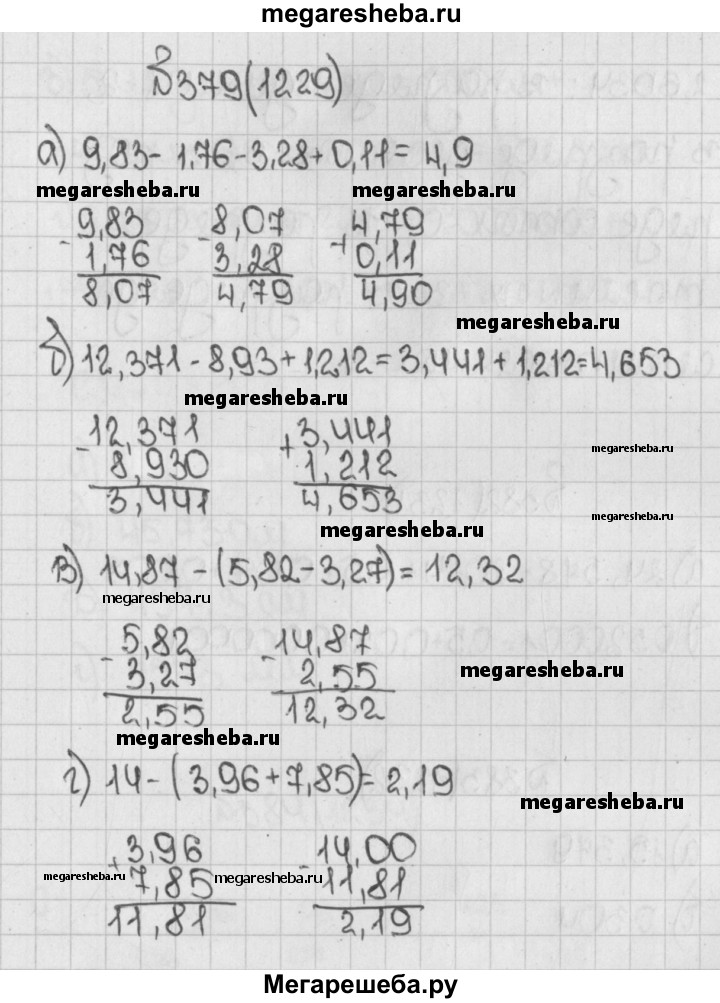 megaresheba.ru
№379(1229)
а) 9,83 - 1,76 - 3,28 + 0,11 = 4,9
megaresheba.ru megaresheba.ru
9,83 8,07 4,79
- 1,76 - 3,28 + 0,11
8,07 4,79 4,90
megaresheba.ru
б) 12,371 - 8,93 + 1,212 = 3,441 + 1,212 = 4,653
megaresheba.ru
12,371 3,441
- 8,930 + 1,212
3,441 4,653
megaresheba.ru
megaresheba.ru
megaresheba.ru
в) 14,87 - (5,82 - 3,27) = 12,32
megaresheba.ru
5,82 14,87
- 3,27 - 2,55
2,55 12,32
megaresheba.ru
megaresheba.ru
г) 14 - (3,96 + 7,85) = 2,19
megaresheba.ru
3,96 14,00
+ 7,85 - 11,81
11,81 2,19
megaresheba.ru megaresheba.ru
Мегарешеба.ру